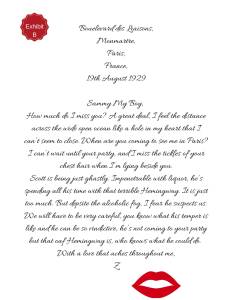 Exhibit
B
Bouelevard des Liaisons,
Monmartre,
Paris,
France,
19th August 1929
Sammy My Boy,
How much do I miss you? A great deal, I feel the distance
across the wide open ocean like a hole in my heart that I
can't seem to close. When are you coming to see me in Paris?
I can't wait until your party, and I miss the tickles of your
chest hair when I'm lying beside you.
Scott is being just ghastly. Impenetrable with liquor, he's
spending all his time with that terrible Hemingway. It is just
too much. But depsite the alcoholic fog, I fear he suspects us.
We will have to be very careful, you know what his temper is
like and he can be so vindictive, he's not coming to your party
but that oaf Hemingway is, who knows what he could do.
With a love that aches throughout me,
Z